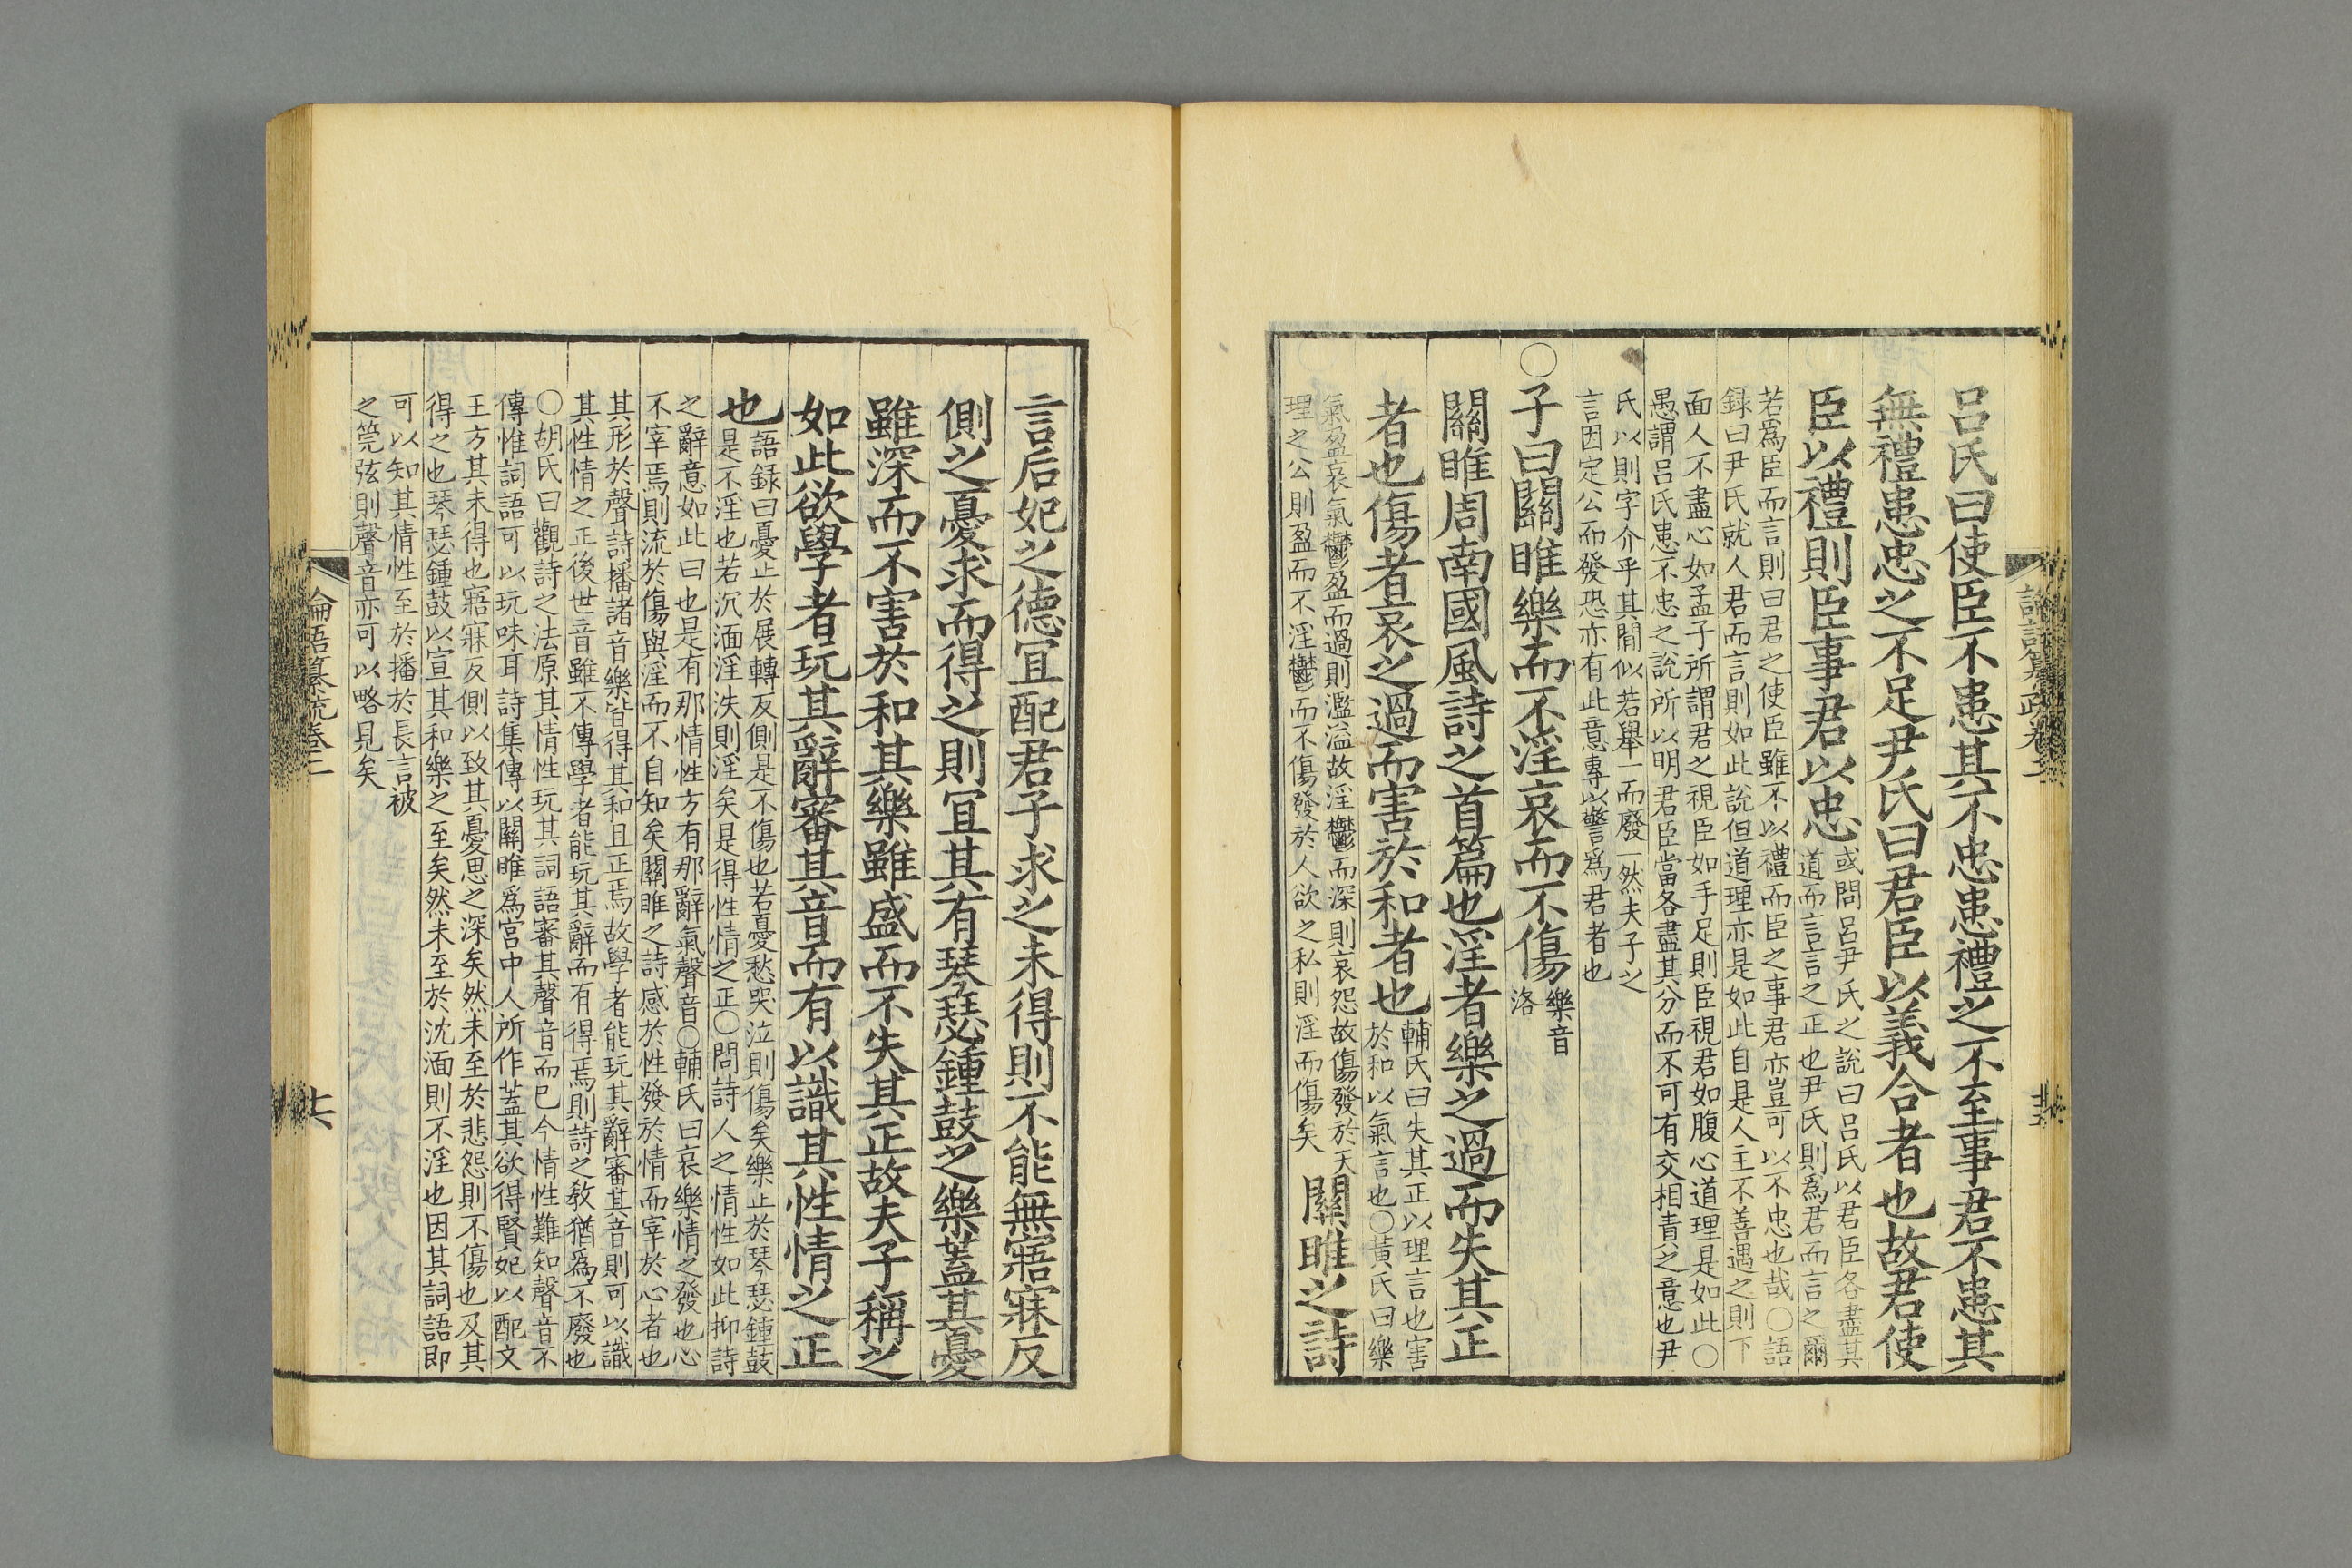 呂氏曰使臣不患其不忠患禮之不至事君不患其
無禮患忠之不足尹氏曰君臣以義合者也故君使
臣以禮則臣事君以忠
或問呂尹氏之說曰呂氏以君臣各盡其
道而言言之正也尹氏則爲君而言之爾
若爲臣而言則曰君之使臣雖不以禮而臣之事君亦豈可以不忠也哉○語
録曰尹氏就人君而言則如此說但道理亦是如此自是人主不善遇之則下
面人不盡心如孟子所謂君之視臣如手足則臣視君如腹心道理是如此○
愚謂呂氏患不忠之說所以明君臣當各盡其分而不可有交相責之意也尹
氏以則字介乎其閒似若舉一而廢一然夫子之
言因定公而發恐亦有此意專以警爲君者也
○子曰關雎樂而不淫哀而不傷
樂音
洛
關雎周南國風詩之首篇也淫者樂之過而失其正
者也傷者哀之過而害於和者也
輔氏曰失其正以理言也害
於和以氣言也○黃氏曰樂
氣盈哀氣鬱盈而過則濫溢故淫鬱而深則哀怨故傷發於天
理之公則盈而不淫鬱而不傷發於人欲之私則淫而傷矣
關雎之詩
言后妃之德冝配君子求之未得則不能無寤寐反
側之憂求而得之則冝其有琴瑟鍾鼓之樂蓋其憂
雖深而不害於和其樂雖盛而不失其正故夫子稱之
如此欲學者玩其辭審其音而有以識其性情之正
也
語録曰憂止於展轉反側是不傷也若憂愁哭泣則傷矣樂止於琴瑟鍾鼓
是不淫也若沉湎淫泆則淫矣是得性情之正○問詩人之情性如此抑詩
之辭意如此曰也是有那情性方有那辭氣聲音○輔氏曰哀樂情之發也心
不宰焉則流於傷與淫而不自知矣關雎之詩感於性發於情而宰於心者也
其形於聲詩播諸音樂皆得其和且正焉故學者能玩其辭審其音則可以識
其性情之正後世音雖不傳學者能玩其辭而有得焉則詩之敎猶爲不廢也
○胡氏曰觀詩之法原其情性玩其詞語審其聲音而已今情性難知聲音不
傳惟詞語可以玩味耳詩集傳以關雎爲宮中人所作蓋其欲得賢妃以配文
王方其未得也寤寐反側以致其憂思之深矣然未至於悲怨則不傷也及其
得之也琴瑟鍾鼓以宣其和樂之至矣然未至於沈湎則不淫也因其詞語即
可以知其情性至於播於長言被
之筦弦則聲音亦可以略見矣
論語纂疏卷二